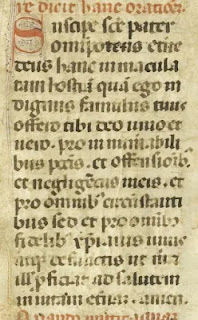 re dicit hanc oration
Suscipe sce pater
omnipotens etne
deus hanc inmacula
tam hostiā quā ego in
dignus famulus tuus
offero tibi deo uiuo et
uero. pro innumabilibꝰ
peccīs. et offensionibꝫ
et negligēciis meis. et
pro omnibꝫ circūstanti
bus sed et pro omnibꝫ
fidelibꝫ xp̄ianis uiuis
atqꝫ defunctis ut m̄ et
ill̓ p̄ficiat ad salutem
in uitam etnā. amen.